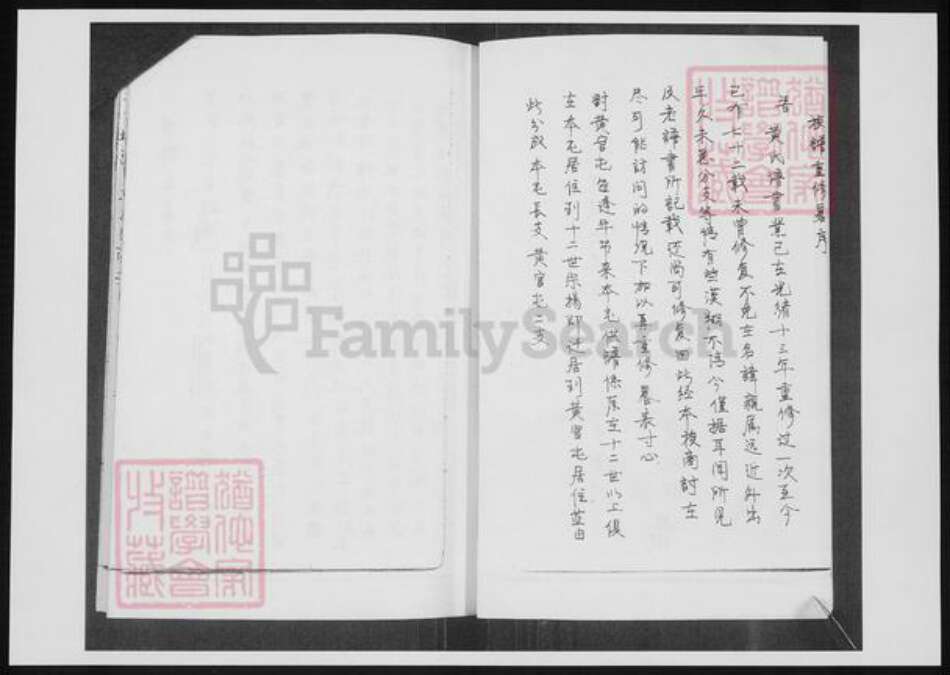 族譜重修畧序
吾黃氏譜書業已在光緒十三年重修过一次至今
已有七十二載未曾修复不免在名諱親屬远近外出
年久未悉分支等情有些漠糊不清今僅据耳聞所見
及老譜書所記載还尚可修复因此经本族商討在
尽可能訪问的情况下加以再重修畧表寸心
對黃官屯每逢年节来本屯供譜係原在十二世以上俱
在本屯居住到十二世宗揚郎迁居到黃官屯居住並由
此分成本屯長支黃官屯二支
FamilySearch
猶他家
譜學會
收藏
猶他家
譜學會
收藏